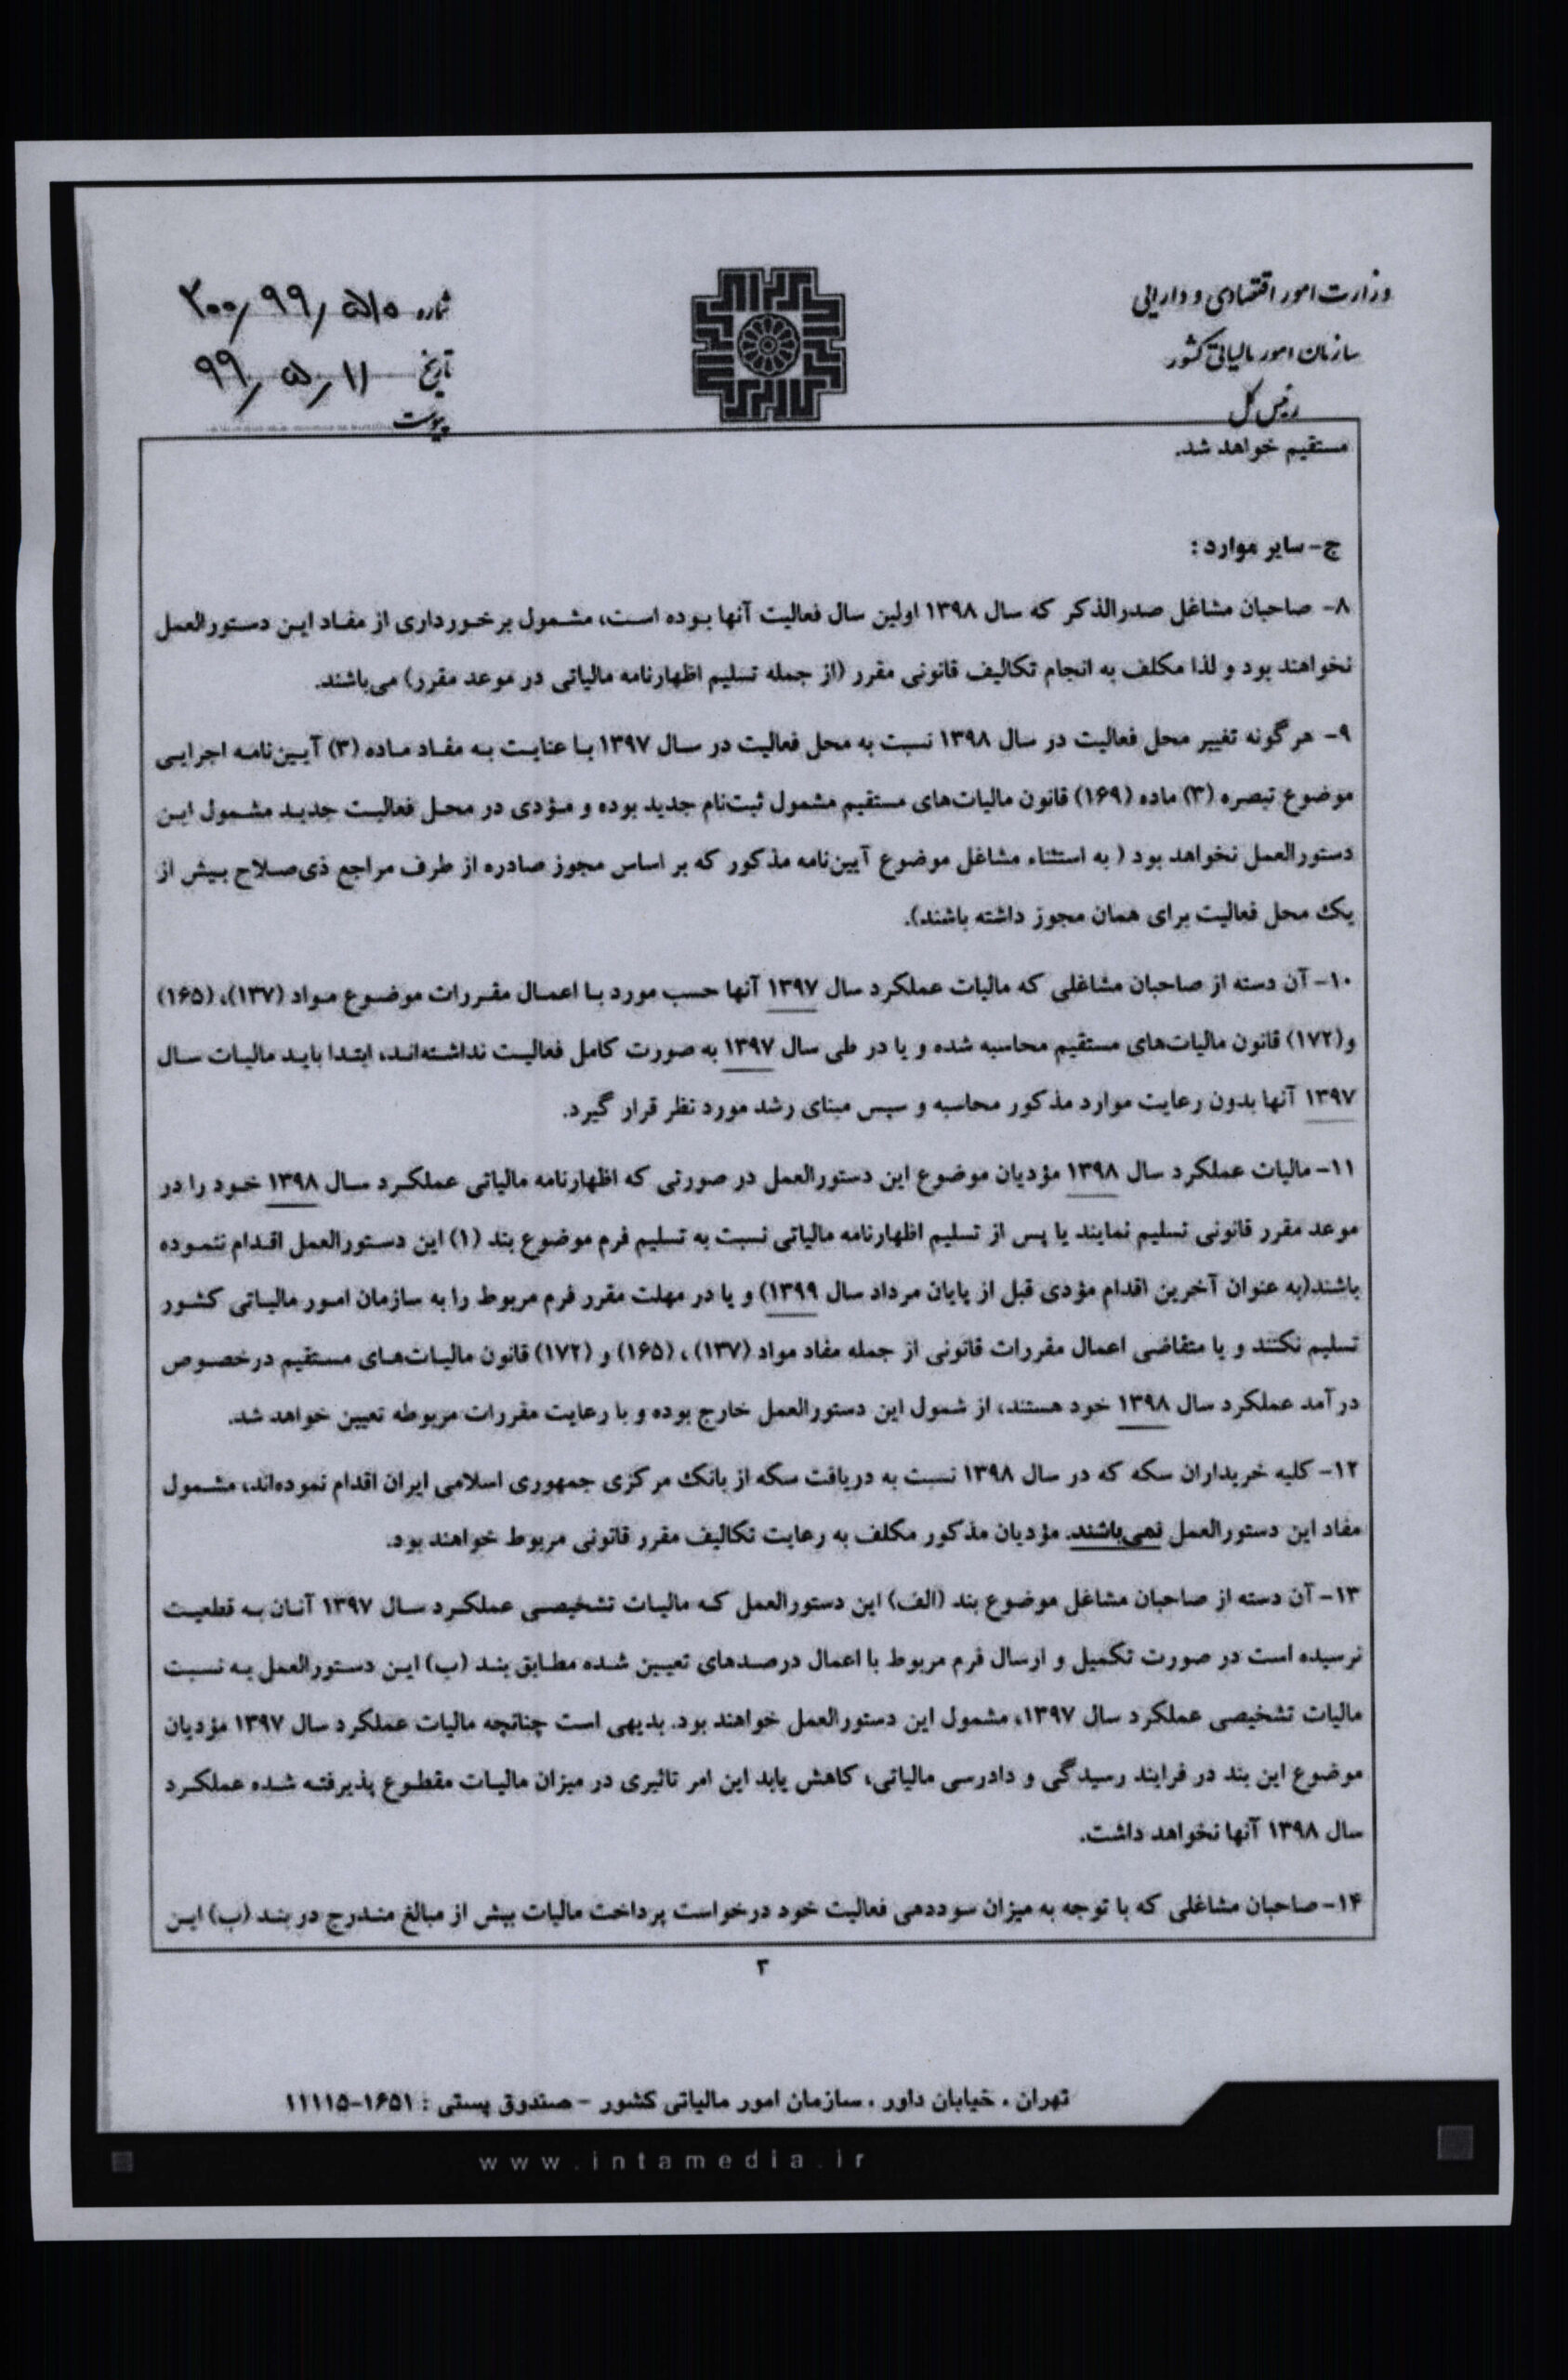 وزارت امور اقتصادی و دارایی
سازمان امور مالیاتی کشور
رئیس کل
شماره ۲۰۰/۹۹/۵۱۰
تاریخ ۹۹/۵/۱۱
پیوست
مستقیم خواهد شد.
ج- سایر موارد :
۸- صاحبان مشاغل صدرالذکر که سال ۱۳۹۸ اولین سال فعالیت آنها بوده است، مشمول برخورداری از مفاد این دستورالعمل
نخواهند بود و لذا مکلف به انجام تکالیف قانونی مقرر (از جمله تسلیم اظهارنامه مالیاتی در موعد مقرر) می‌باشند.
۹- هرگونه تغییر محل فعالیت در سال ۱۳۹۸ نسبت به محل فعالیت در سال ۱۳۹۷ با عنایت به مفاد ماده (۳) آیین‌نامه اجرایی
موضوع تبصره (۳) ماده (۱۶۹) قانون مالیات‌های مستقیم مشمول ثبت‌نام جدید بوده و مؤدی در محل فعالیت جدید مشمول این
دستورالعمل نخواهد بود ( به استثناء مشاغل موضوع آیین‌نامه مذکور که بر اساس مجوز صادره از طرف مراجع ذی‌صلاح بیش از
یک محل فعالیت برای همان مجوز داشته باشند).
۱۰- آن دسته از صاحبان مشاغلی که مالیات عملکرد سال ۱۳۹۷ آنها حسب مورد با اعمال مقررات موضوع مواد (۱۳۷)، (۱۶۵)
و(۱۷۲) قانون مالیات‌های مستقیم محاسبه شده و یا در طی سال ۱۳۹۷ به صورت کامل فعالیت نداشته‌اند، ابتدا باید مالیات سال
۱۳۹۷ آنها بدون رعایت موارد مذکور محاسبه و سپس مبنای رشد مورد نظر قرار گیرد.
۱۱- مالیات عملکرد سال ۱۳۹۸ مؤدیان موضوع این دستورالعمل در صورتی که اظهارنامه مالیاتی عملکرد سال ۱۳۹۸ خود را در
موعد مقرر قانونی تسلیم نمایند یا پس از تسلیم اظهارنامه مالیاتی نسبت به تسلیم فرم موضوع بند (۱) این دستورالعمل اقدام ننموده
باشند(به عنوان آخرین اقدام مؤدی قبل از پایان مرداد سال ۱۳۹۹) و یا در مهلت مقرر فرم مربوط را به سازمان امور مالیاتی کشور
تسلیم نکنند و یا متقاضی اعمال مقررات قانونی از جمله مفاد مواد (۱۳۷) ، (۱۶۵) و (۱۷۲) قانون مالیات‌های مستقیم درخصوص
درآمد عملکرد سال ۱۳۹۸ خود هستند، از شمول این دستورالعمل خارج بوده و با رعایت مقررات مربوطه تعیین خواهد شد.
۱۲- کلیه خریداران سکه که در سال ۱۳۹۸ نسبت به دریافت سکه از بانک مرکزی جمهوری اسلامی ایران اقدام نموده‌اند، مشمول
مفاد این دستورالعمل نمی‌باشند. مؤدیان مذکور مکلف به رعایت تکالیف مقرر قانونی مربوط خواهند بود.
۱۳- آن دسته از صاحبان مشاغل موضوع بند (الف) این دستورالعمل که مالیات تشخیصی عملکرد سال ۱۳۹۷ آنان به قطعیت
نرسیده است در صورت تکمیل و ارسال فرم مربوط با اعمال درصدهای تعیین شده مطابق بند (ب) این دستورالعمل به نسبت
مالیات تشخیصی عملکرد سال ۱۳۹۷، مشمول این دستورالعمل خواهند بود. بدیهی است چنانچه مالیات عملکرد سال ۱۳۹۷ مؤدیان
موضوع این بند در فرایند رسیدگی و دادرسی مالیاتی، کاهش یابد این امر تاثیری در میزان مالیات مقطوع پذیرفته شده عملکرد
سال ۱۳۹۸ آنها نخواهد داشت.
۱۴- صاحبان مشاغلی که با توجه به میزان سوددهی فعالیت خود درخواست پرداخت مالیات بیش از مبالغ مندرج در بند (ب) این
۳
تهران ، خیابان داور ، سازمان امور مالیاتی کشور - صندوق پستی : ۱۶۵۱-۱۱۱۱۵
www.intamedia.ir